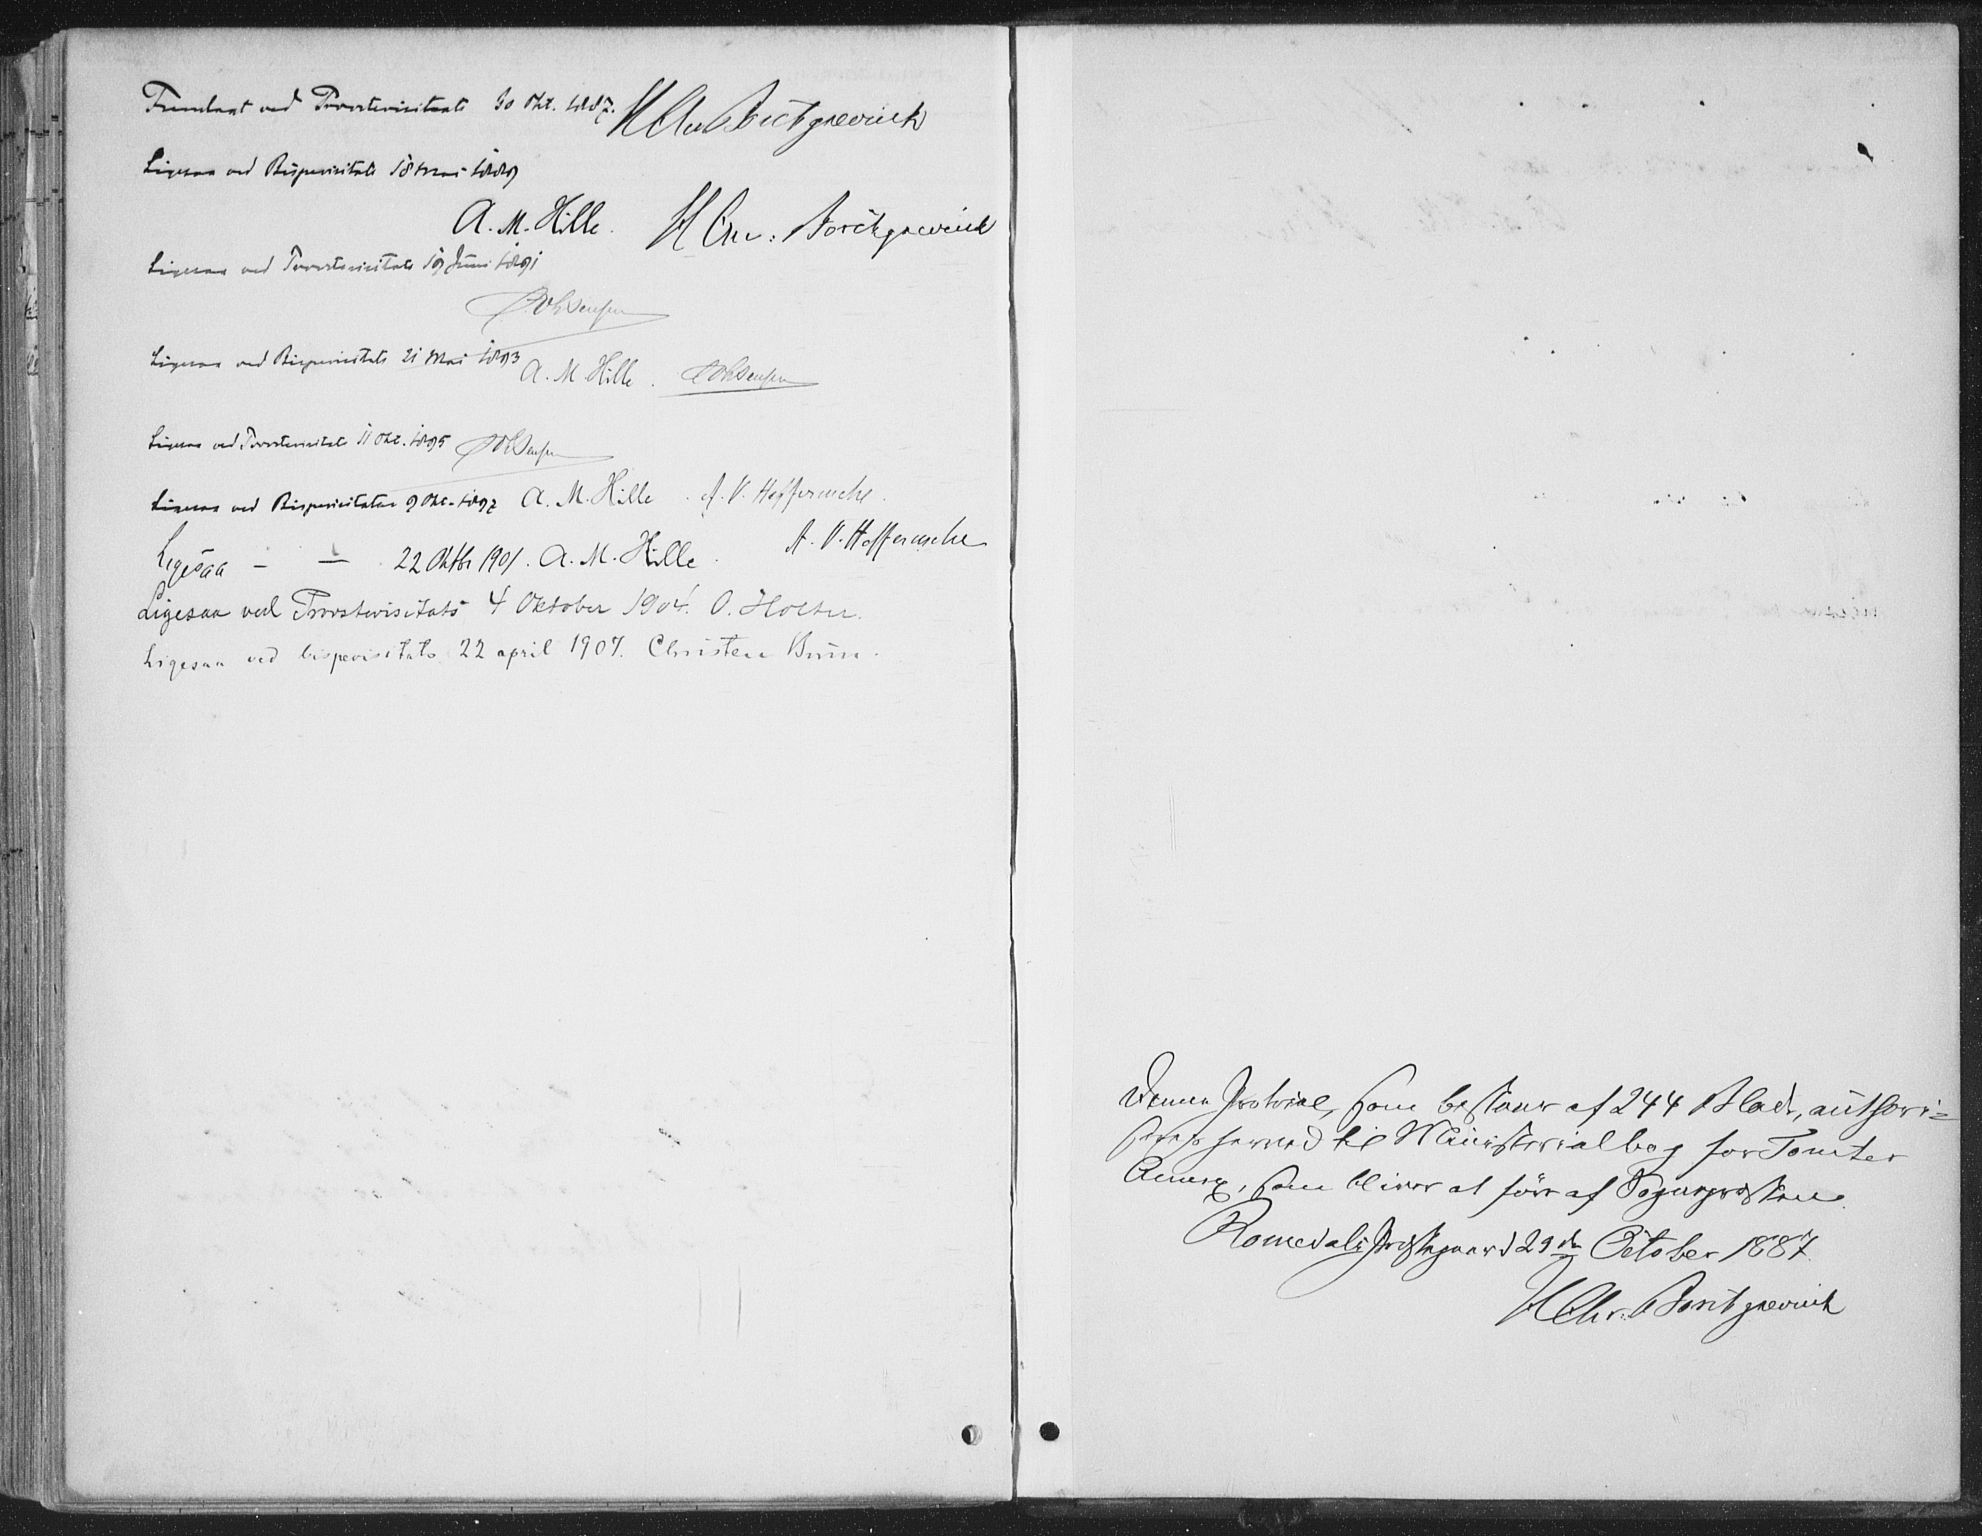 Fremlagt ved Provstevisitats 30 Okt. 1887. H Chr Borchgrevink
Ligesaa ved Bispevisitats 18 Mai 1889
A. M. Hille. H Chr: Borchgrevink
Ligesaa ved Provstevisitats 19 Juni 1891
Ligesaa ved Bispevisitats 21 Mai 1893 A. M. Hille.
Ligesaa ved Provstevisitats 11 Okt. 1895
Ligesaa ved Bispevisitatse 9 Okt. 1897 A. M. Hille. A. V. Heffermehl.
Ligesaa – – 22 Oktbr 1901. A. M. Hille. A. V. Heffermehl
Ligesaa ved Provstevisitats 4 Oktober 1904. O. Holter.
Ligesaa ved bispevisitats 22 april 1907. Christen Brun.
Denne Protocol, som bestaar af 244 Blade, authori-
seres herved til Ministerialbog for Tomter
Annex, som bliver at føre af Sognepræsten.
Romedals Præstegaard 29de October 1887.
H Chr: Borchgrevink